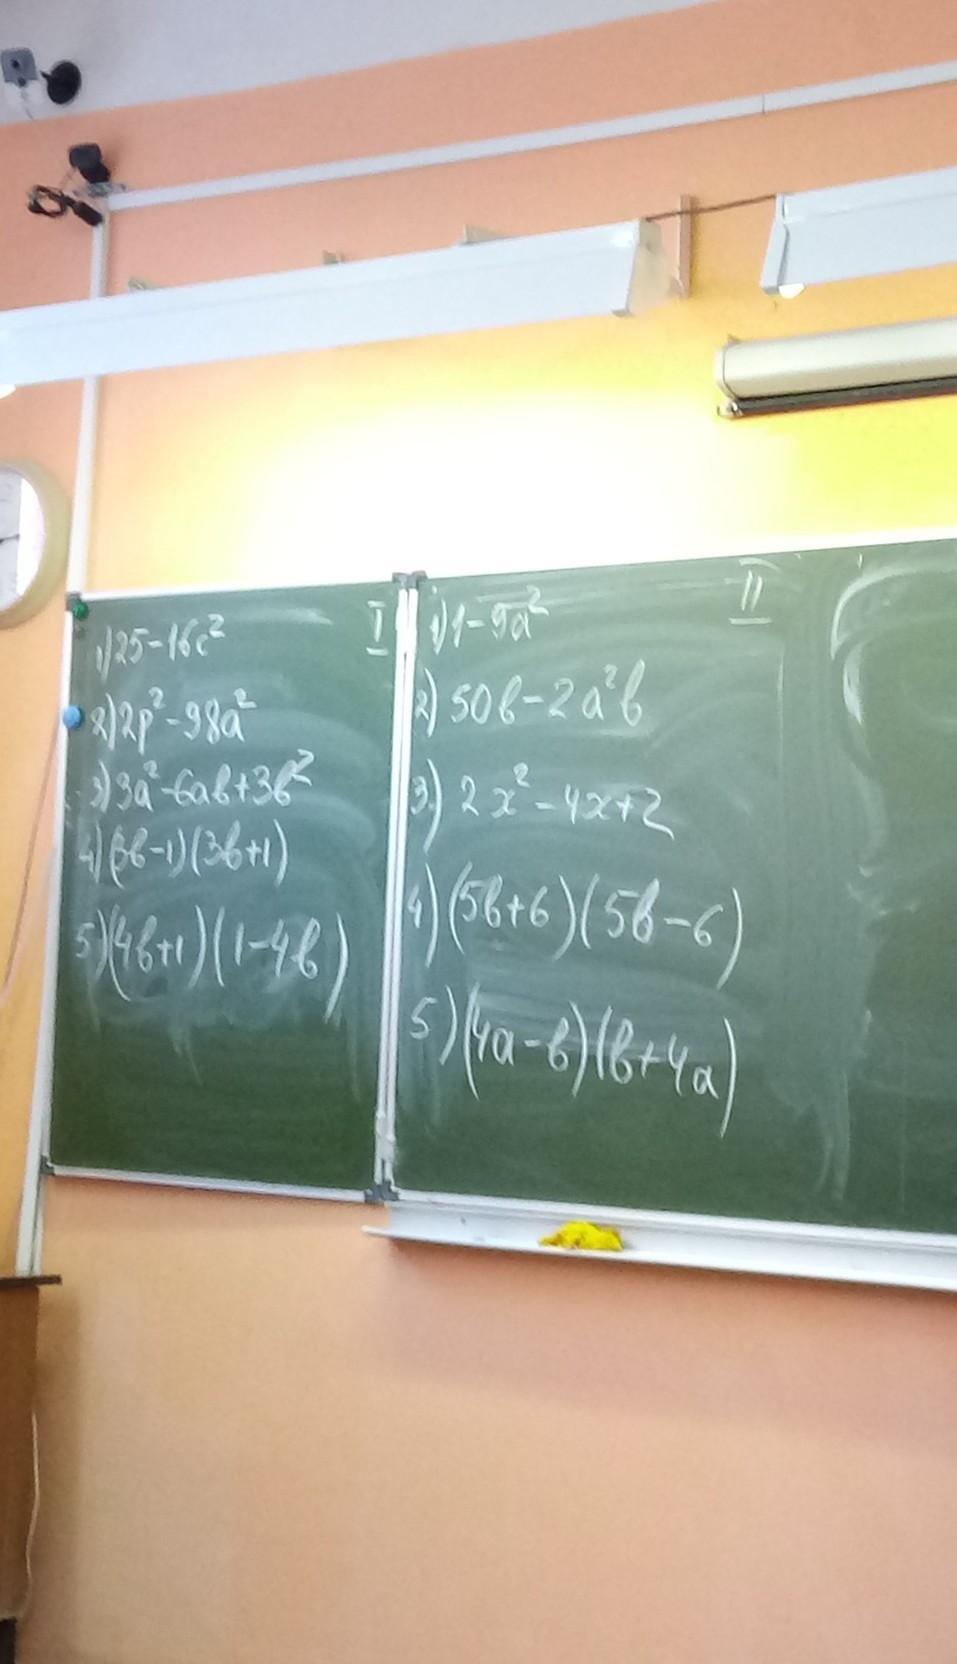 I
1) 25-16c²
2) 2p²-98a²
3) 3a²-6ab+3b²
4) (3b-1)(3b+1)
5) (4b+1)(1-4b)
II
1) 1-9a²
2) 50b-2a²b
3) 2x²-4x+2
4) (5b+6)(5b-6)
5) (4a-b)(b+4a)